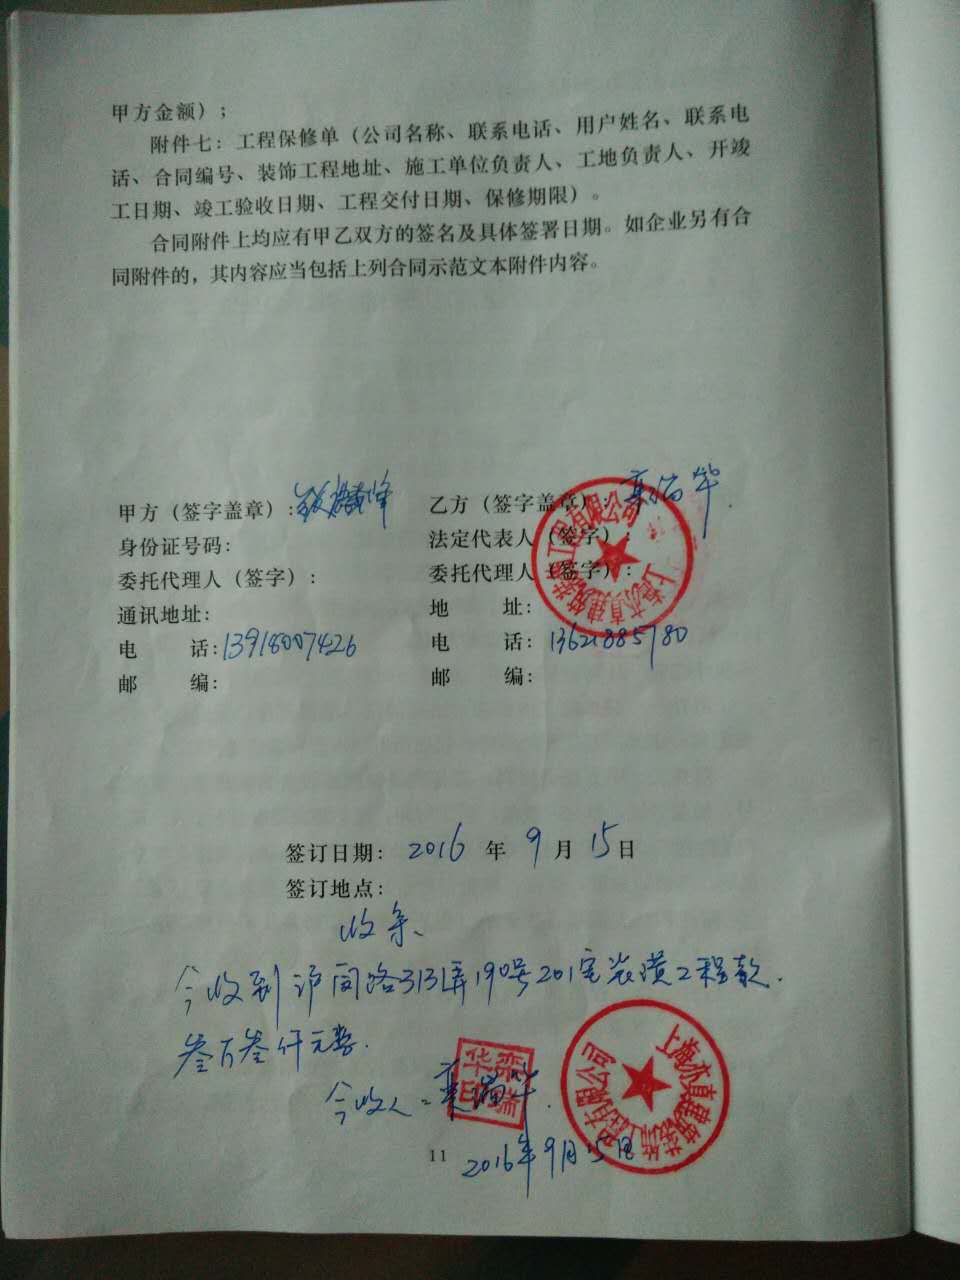 甲方金额）；
附件七：工程保修单（公司名称、联系电话、用户姓名、联系电
话、合同编号、装饰工程地址、施工单位负责人、工地负责人、开竣
工日期、竣工验收日期、工程交付日期、保修期限）。
合同附件上均应有甲乙双方的签名及具体签署日期。如企业另有合
同附件的，其内容应当包括上列合同示范文本附件内容。
甲方（签字盖章）:
身份证号码:
委托代理人（签字）:
通讯地址:
电 话:13918007426
邮 编:
乙方（签字盖章）: 栾瑞华
法定代表人（签字）:
委托代理人（签字）:
地 址:
电 话: 13621885780
邮 编:
签订日期: 2016 年 9 月 15 日
签订地点:
收条
今收到沪闵路313弄190号201室装潢工程款
叁万叁仟元整.
今收人: 栾瑞华
栾瑞华印
2016年9月15日
11